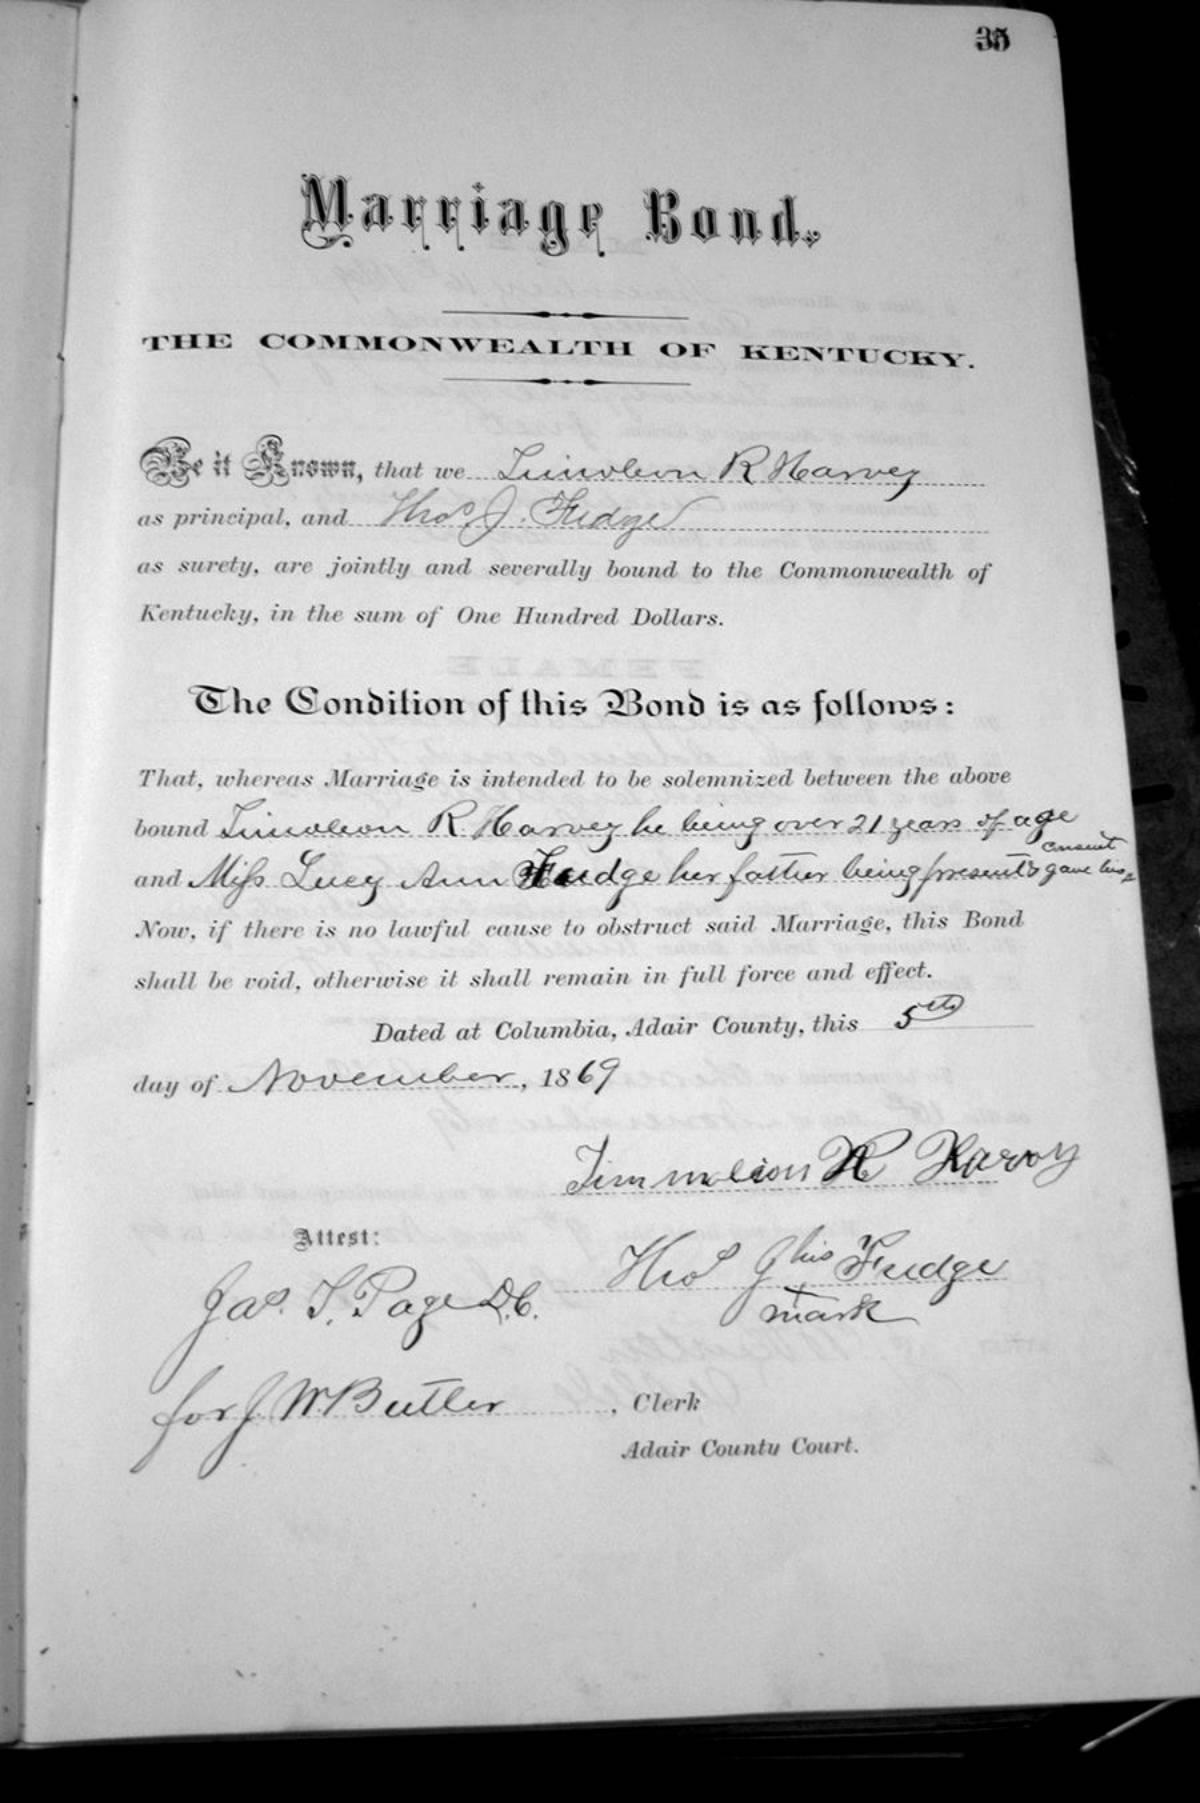 35
Marriage Bond.
THE COMMONWEALTH OF KENTUCKY.
Be it Known, that we Timoleon R Harvey
as principal, and Thos J. Fudge
as surety, are jointly and severally bound to the Commonwealth of
Kentucky, in the sum of One Hundred Dollars.
The Condition of this Bond is as follows:
That, whereas Marriage is intended to be solemnized between the above
bound Timoleon R Harvey he being over 21 years of age
consent
and Miss Lucy Ann Fudge her father being present & gave his
Now, if there is no lawful cause to obstruct said Marriage, this Bond
shall be void, otherwise it shall remain in full force and effect.
Dated at Columbia, Adair County, this 5th
day of November, 1869
Timmoleon R Harvy
Attest:
Thos J his Fudge
Jas. T. Page D.C.
x
mark
for J. W. Butler, Clerk
Adair County Court.